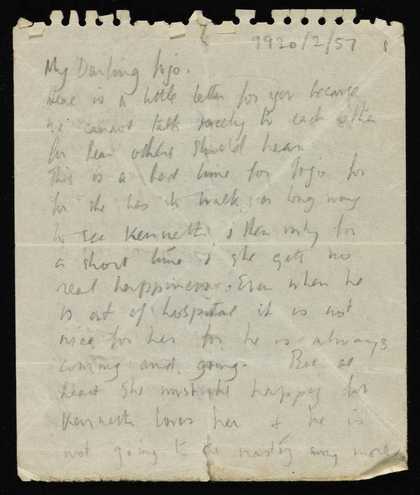 9920/2/57
My Darling Jojo.
Here is a little letter for you because
we cannot talk nicely to each other
for fear others should hear.
This is a bad time for Jojo for
for she has to walk a long way
to see Kenneth & then only for
a short time & she gets no
real happiness. Even when he
is out of hospital it is not
nice for her for he is always
coming and going. But at
heart she must be happy for
Kenneth loves her & he is
not going to be nasty any more